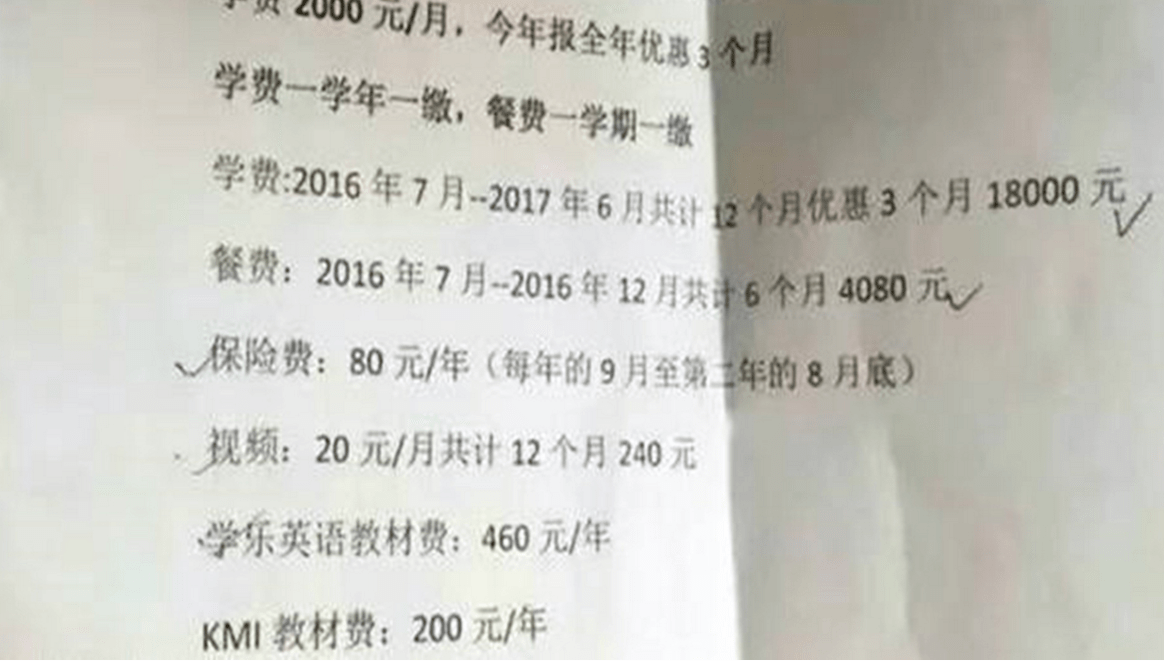 学费 2000 元/月，今年报全年优惠 3 个月
学费一学年一缴，餐费一学期一缴
学费:2016 年 7 月--2017 年 6 月共计 12 个月优惠 3 个月 18000 元
餐费：2016 年 7 月--2016 年 12 月共计 6 个月 4080 元
保险费：80 元/年（每年的 9 月至第二年的 8 月底）
视频：20 元/月共计 12 个月 240 元
学乐英语教材费：460 元/年
KMI 教材费：200 元/年